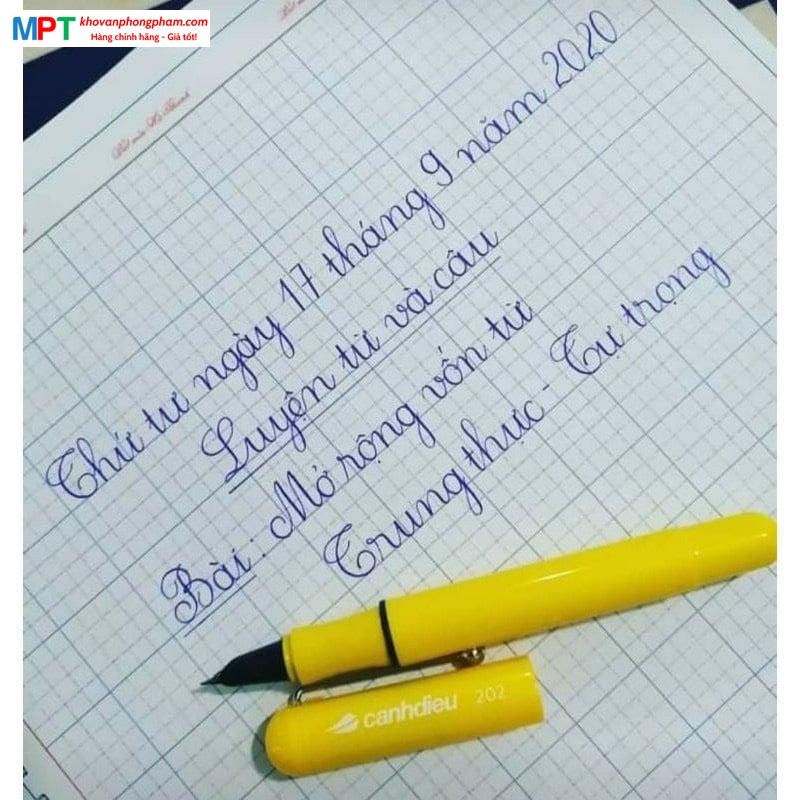 MPT khovanphongpham.com
Hàng chính hãng - Giá tốt!
Thứ tư ngày 17 tháng 9 năm 2020
Luyện từ và câu
Bài: Mở rộng vốn từ
Trung thực - Tự trọng
canhdieu 202